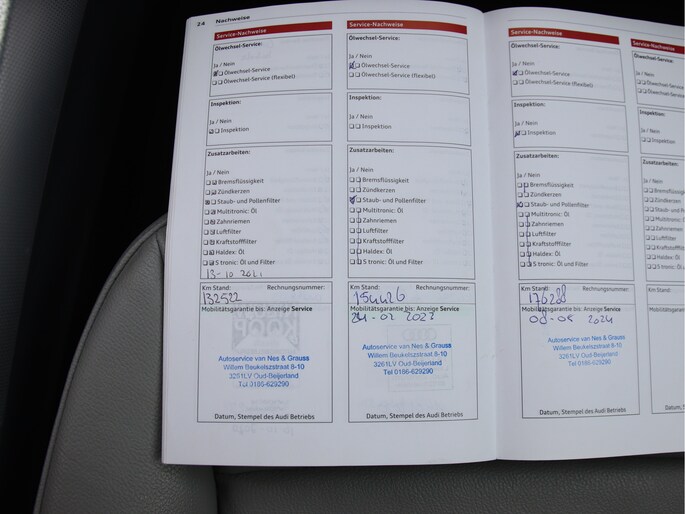 24 Nachweise
Service-Nachweise
Ölwechsel-Service:
Ja / Nein
Ölwechsel-Service
Ölwechsel-Service (flexibel)
Inspektion:
Ja / Nein
Inspektion
Zusatzarbeiten:
Ja / Nein
Bremsflüssigkeit
Zündkerzen
Staub- und Pollenfilter
Multitronic: Öl
Zahnriemen
Luftfilter
Kraftstofffilter
Haldex: Öl
S tronic: Öl und Filter
13-10 2021
Km Stand: Rechnungsnummer:
132522
Mobilitätsgarantie bis: Anzeige Service
Autoservice van Nes & Grauss
Willem Beukelszstraat 8-10
3261LV Oud-Beijerland
Tel 0186-629290
Datum, Stempel des Audi Betriebs
Service-Nachweise
Ölwechsel-Service:
Ja / Nein
Ölwechsel-Service
Ölwechsel-Service (flexibel)
Inspektion:
Ja / Nein
Inspektion
Zusatzarbeiten:
Ja / Nein
Bremsflüssigkeit
Zündkerzen
Staub- und Pollenfilter
Multitronic: Öl
Zahnriemen
Luftfilter
Kraftstofffilter
Haldex: Öl
S tronic: Öl und Filter
Km Stand: Rechnungsnummer:
154426
Mobilitätsgarantie bis: Anzeige Service
Autoservice van Nes & Grauss
Willem Beukelszstraat 8-10
3261LV Oud-Beijerland
Tel 0186-629290
Datum, Stempel des Audi Betriebs
Service-Nachweise
Ölwechsel-Service:
Ja / Nein
Ölwechsel-Service
Ölwechsel-Service (flexibel)
Inspektion:
Ja / Nein
Inspektion
Zusatzarbeiten:
Ja / Nein
Bremsflüssigkeit
Zündkerzen
Staub- und Pollenfilter
Multitronic: Öl
Zahnriemen
Luftfilter
Kraftstofffilter
Haldex: Öl
S tronic: Öl und Filter
Km Stand: Rechnungsnummer:
176288
Mobilitätsgarantie bis: Anzeige Service
2024
Autoservice van Nes & Grauss
Willem Beukelszstraat 8-10
3261LV Oud-Beijerland
Tel 0186-629290
Datum, Stempel des Audi Betriebs
Service-Nachweise
Ölwechsel-Service:
Ja / Nein
Inspektion:
Ja / Nein
Inspektion
Zusatzarbeiten:
Ja / Nein
Zündkerzen
Zahnriemen
Luftfilter
Haldex: Öl
Km Stand: